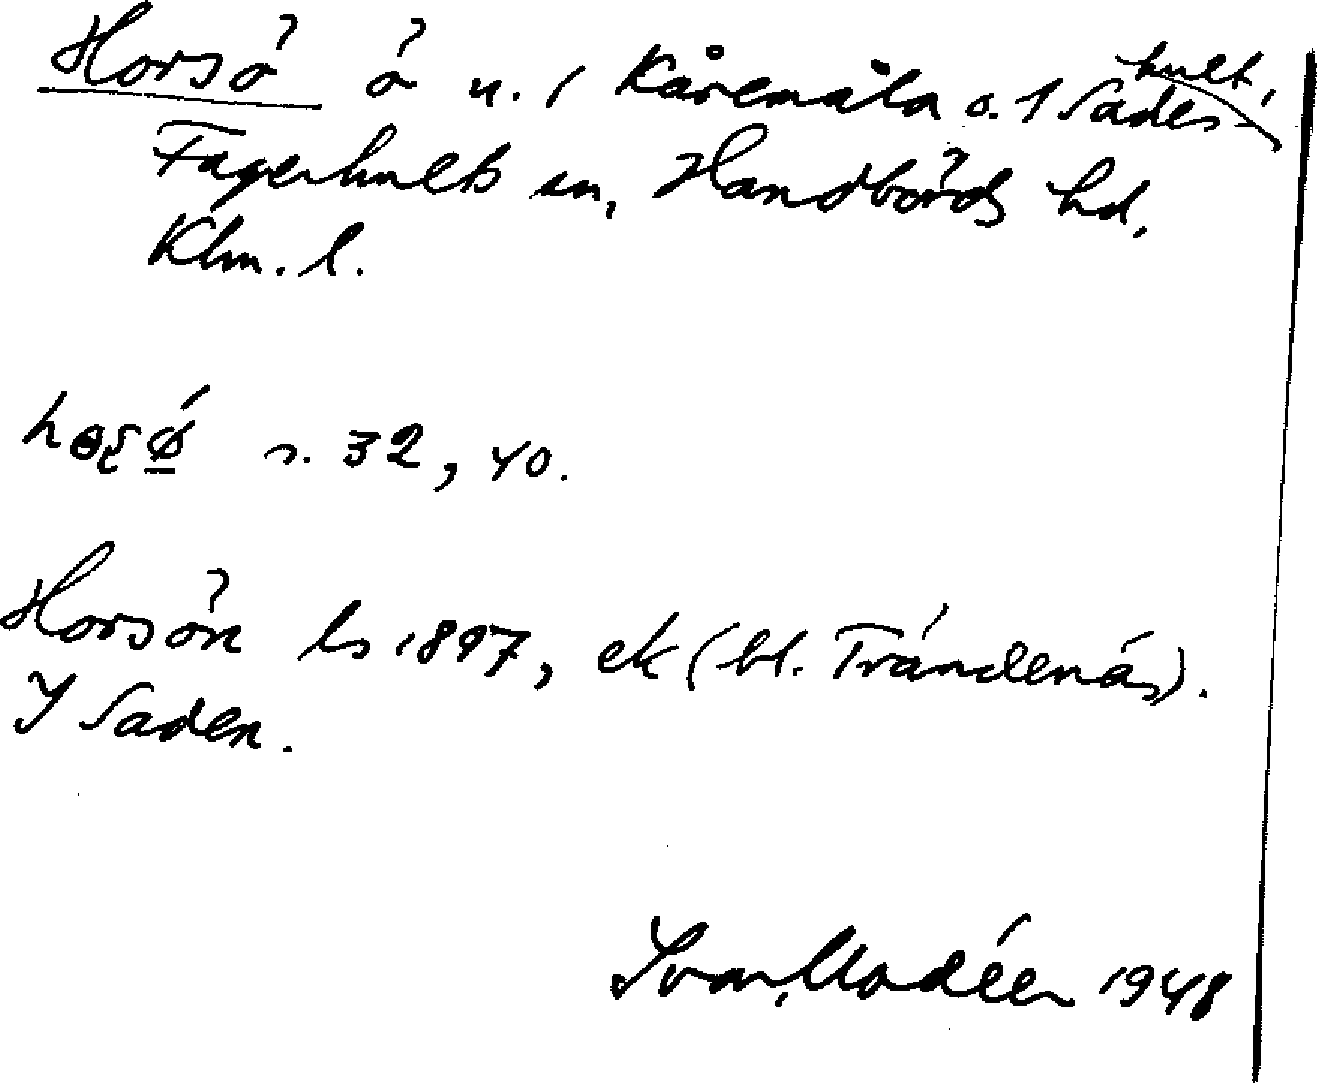 Horsö ö u. / Kåremåla o. 1 Sades-
hult,
Fagerhults sn, Handbörds hd,
Klm. l.
s. 32, 40.
Horsön ls 1897, ek (bl. Trändenäs).
I Saden.
Ivar Modéer 1948